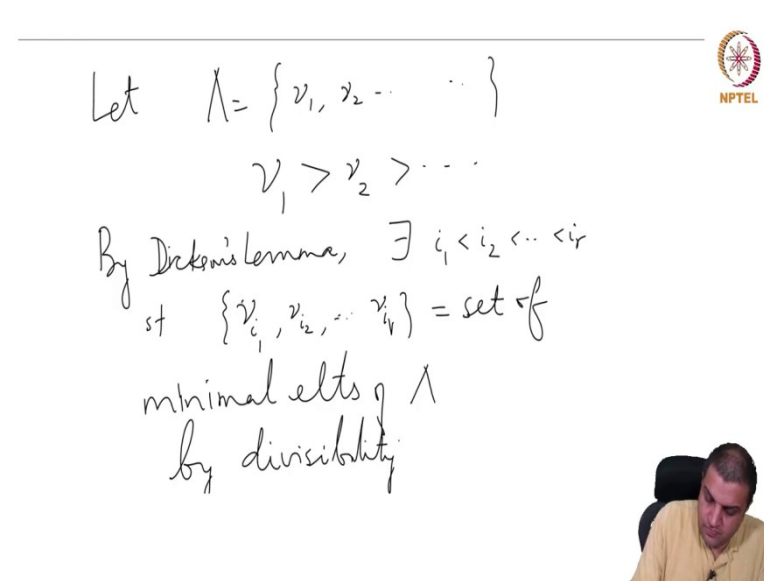 NPTEL
Let Λ = { ν₁, ν₂ -·· ·· }
ν₁ > ν₂ > ····
By Dickson's Lemma, ∃ i₁ < i₂ < ·· < iᵣ
st { ν_{i₁}, ν_{i₂}, ··· ν_{iᵣ} } = set of
minimal elts of Λ
by divisibility